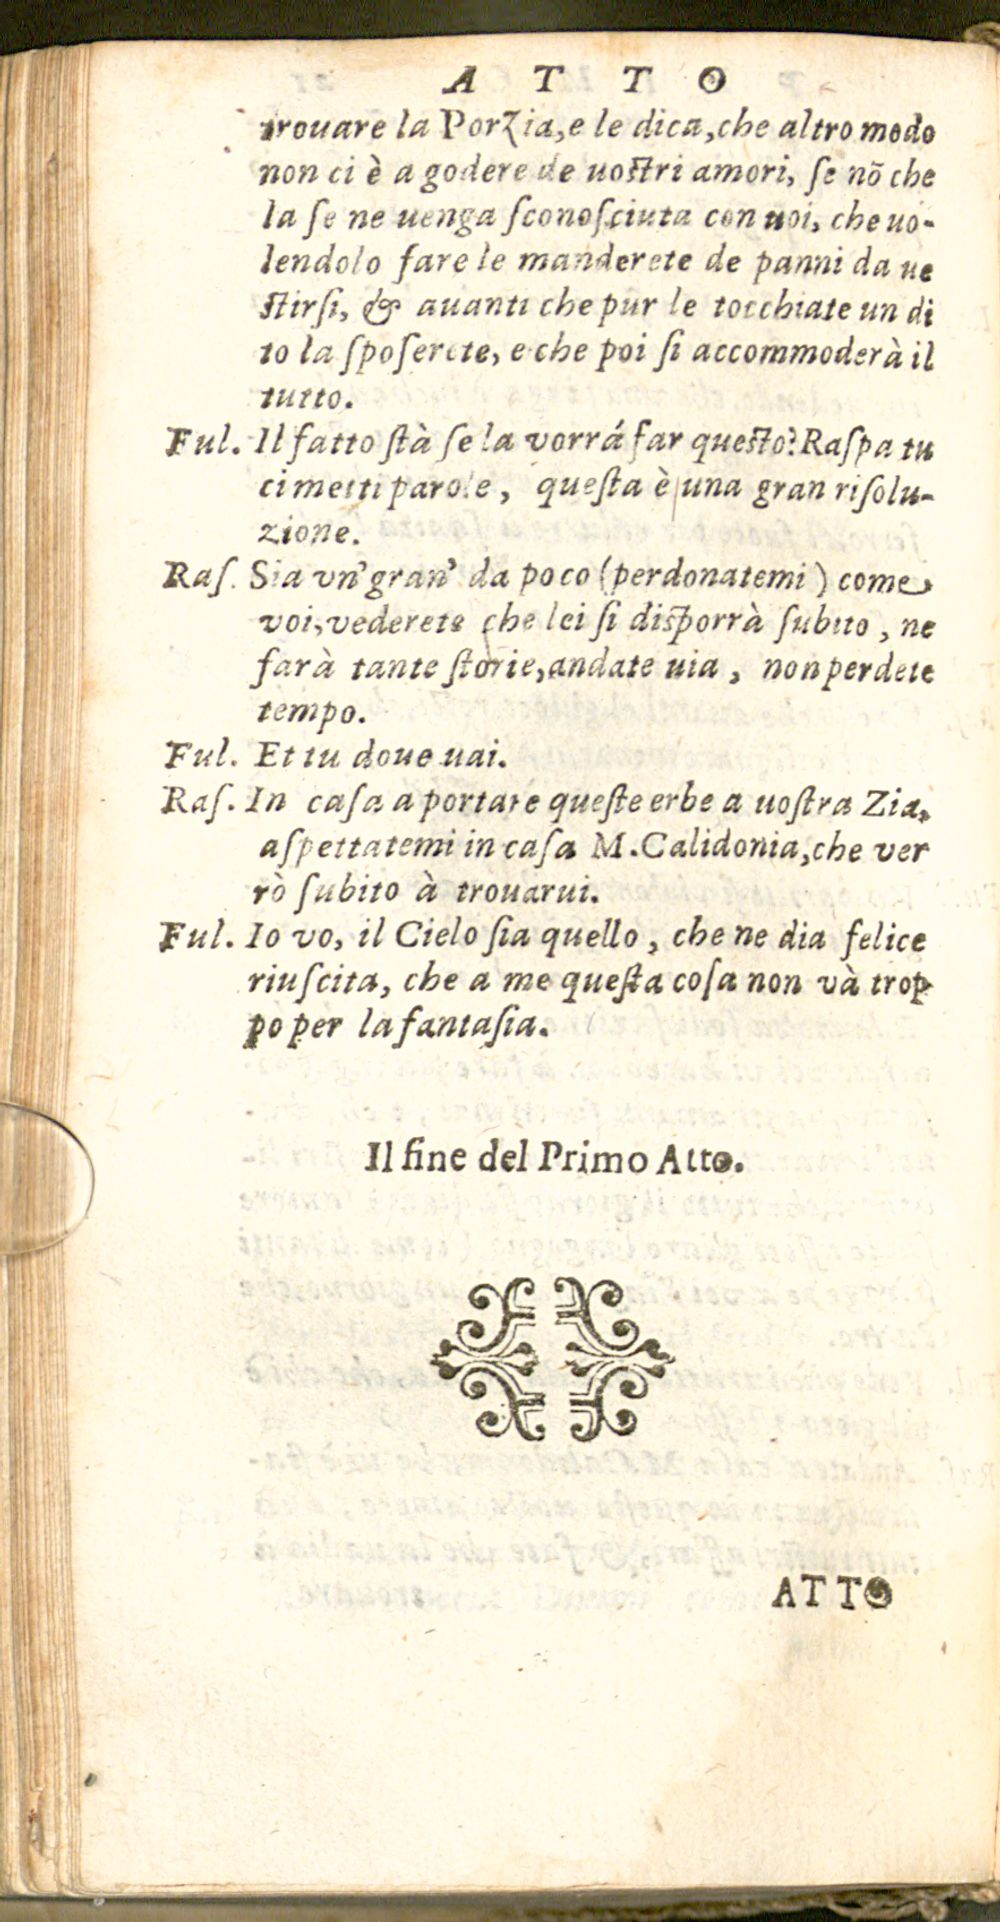 A T T O
trouare la Porzia, e le dica, che altro modo
non ci è a godere de uoſtri amori, ſe nõ che
la ſe ne uenga ſconoſciuta con uoi, che uo-
lendolo fare le manderete de panni da ue
ſtirſi, & auanti che pur le tocchiate un di
to la ſpoſerete, e che poi ſi accommoderà il
tutto.
Ful. Il fatto ſtà ſe la vorrá far queſto? Raſpa tu
ci metti parole, queſta è una gran riſolu-
zione.
Raſ. Sia vn' gran' da poco (perdonatemi) come
voi, vederete che lei ſi diſporrà ſubito, ne
farà tante ſtorie, andate uia, non perdete
tempo.
Ful. Et tu doue uai.
Raſ. In caſa a portare queſte erbe a uoſtra Zia,
aſpettatemi in caſa M. Calidonia, che ver
rò ſubito à trouarui.
Ful. Io vo, il Cielo ſia quello, che ne dia felice
riuſcita, che a me queſta coſa non và trop
po per la fantaſia.
Il fine del Primo Atto.
ATTO